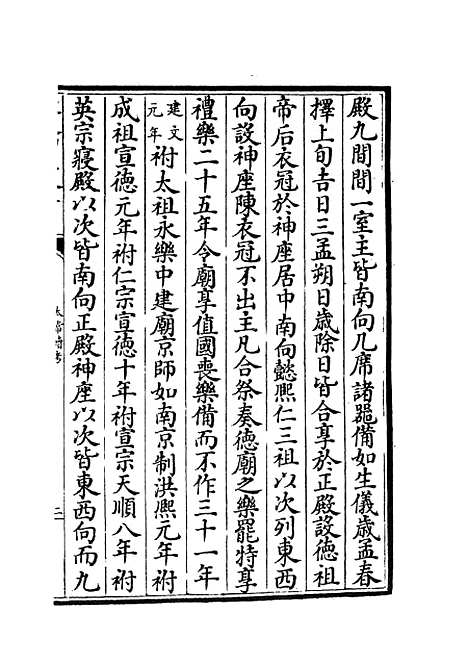 殿九間間一室主皆南向几席諸器備如生儀歳孟春
擇上旬吉日三孟朔日歳除日皆合享於正殿設徳祖
帝后衣冠於神座居中南向懿熈仁三祖以次列東西
向設神座陳衣冠不出主凡合祭奏徳廟之樂罷特享
禮樂二十五年令廟享值國喪樂備而不作三十一年
建文元年祔太祖永樂中建廟京師如南京制洪熈元年祔
成祖宣徳元年祔仁宗宣徳十年祔宣宗天順八年祔
英宗寢殿以次皆南向正殿神座以次皆東西向而九
太常續考
二